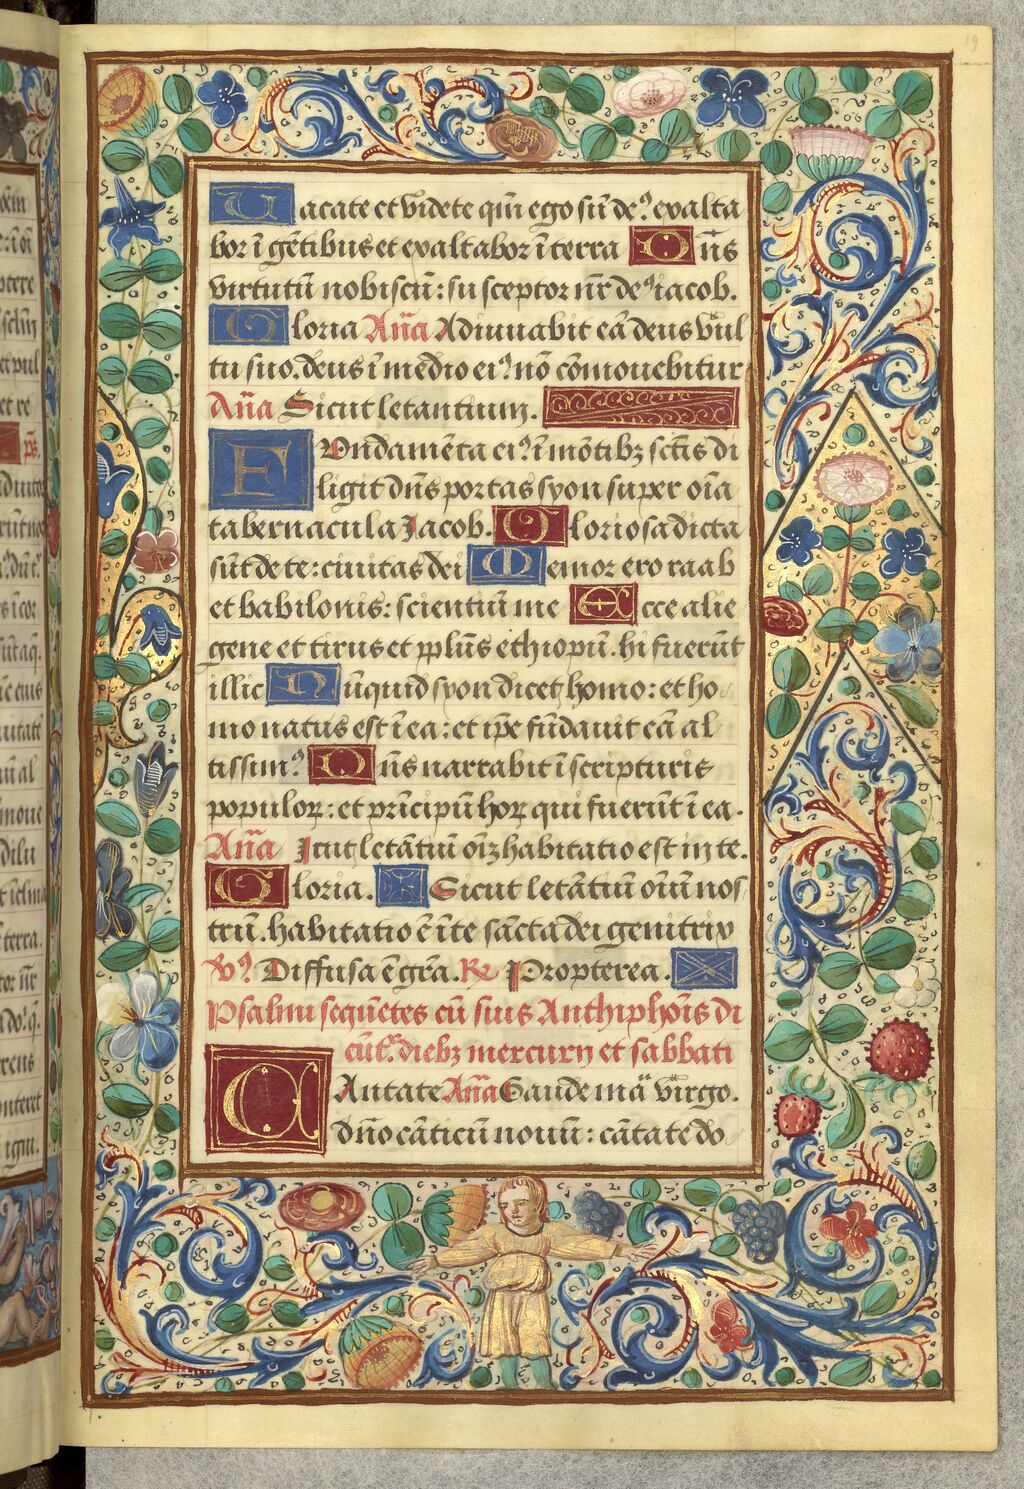 19
Uacate et videte qm̃ ego sũ de⁹ exalta
bor ĩ gẽtibus et exaltabor ĩ terra Dñs
virtutũ nobiscũ: susceptor nr̃ de⁹ iacob.
Gloria Añã Adiuuabit eã deus vul
tu suo. deus ĩ medio ei⁹ nõ cõmouebitur
Añã Sicut letantium.
Fundamẽta ei⁹ ĩ mõtibȝ sctĩs di
ligit dñs portas syon super oĩa
tabernacula Jacob. Gloriosa dicta
sũt de te: ciuitas dei Memor ero raab
et babilonis: scientiũ me Ecce alie
gene et tirus et pplũs ethiopũ. hi fuerũt
illic Nũquid syon dicet homo: et ho
mo natus est ĩ ea: et ip̃e fũdauit eã al
tissim⁹ Dñs narrabit ĩ scripturis
populoꝝ: et prĩcipũ hoꝝ qui fuerũt ĩ ea.
Añã Sicut letãtiũ oĩȝ habitatio est in te.
Gloria. Sicut letãtiũ oĩũ nos
trũ. habitatio ẽ ĩ te sãcta dei genitrix
v⁹ Diffusa ẽ grã. ℞ Propterea.
Psalmi sequẽtes cũ suis Anthiphõis di
cũt᷑ diebȝ mercurij et sabbati
Cantate Añã Gaude mã virgo.
dño cãticũ nouũ: cãtate do